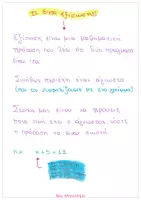 Τι είναι εξίσωση;
Εξίσωση είναι μια μαθηματική
πρόταση που λέει ότι δύο πράγματα
είναι ίσα.
Συνήθως περιέχει έναν άγνωστο
(που τον συμβολίζουμε με ένα γράμμα)
Σκοπός μας είναι να βρούμε
ποια τιμή έχει ο άγνωστος, ώστε
η πρόταση να είναι σωστή
π.χ. x + 5 = 12